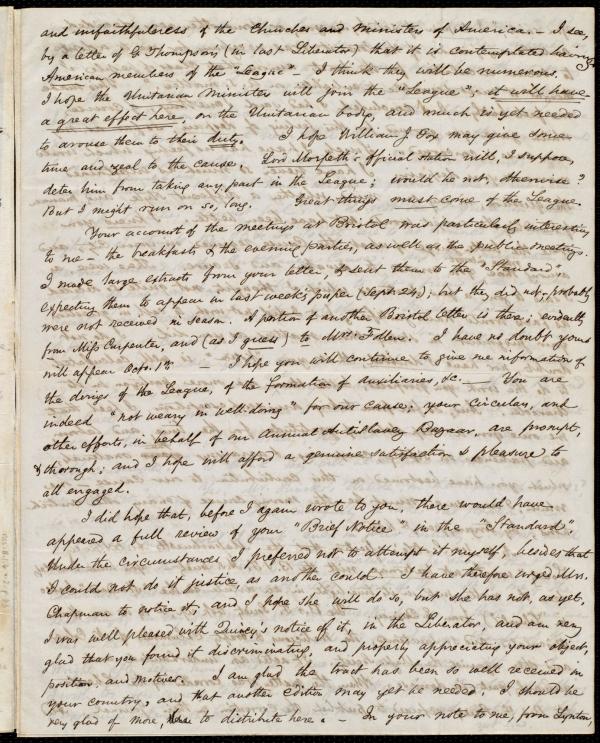 and unfaithfulness of the Churches and Ministers of America. – I see,
by a letter of G. Thompson's (in last Liberator) that it is contemplated having
American members of the "League" – I think they will be numerous.
I hope the Unitarian Ministers will join the "League"; it will have
a great effect here, on the Unitarian body, and much is yet needed
to arouse them to their duty. I hope William J. Fox may give some
time and zeal to the cause. Lord Morpeth's official station will, I suppose,
deter him from taking any part in the League; would he not, otherwise?
But I might run on so, long. Great things must come of the League.
Your account of the meetings at Bristol was particularly interesting
to me – the breakfasts & the evening parties, as well as the public meetings.
I made large extracts from your letter, & sent them to the "Standard"
expecting them to appear in last week's paper (Sept. 24); but they did not; probably
were not received in season. A portion of another Bristol letter is there; evidently
from Miss Carpenter, and (as I guess) to Mrs. Follen. I have no doubt yours
will appear Octo. 1st. – I hope you will continue to give me information of
the doings of the League, of the formation of auxiliaries, &c. – You are
indeed "not weary in well-doing" for our cause; your circulars, and
other efforts, in behalf of our Annual Antislavery Bazaar, are prompt,
& thorough; and I hope will afford a genuine satisfaction & pleasure to
all engaged.
I did hope that, before I again wrote to you, there would have
appeared a full review of your "Brief Notice" in the "Standard".
Under the circumstances I preferred not to attempt it myself, besides that
I could not do it justice as another could. I have therefore urged Mrs.
Chapman to notice it, and I hope she will do so, but she has not, as yet.
I was well pleased with Quincy's notice of it, in the Liberator, and am very
glad that you found it discriminating, and properly appreciating your object,
position, and motives. I am glad the tract has been so well received in
your country, and that another edition may yet be needed. I should be
very glad of more, to distribute here. – In your note to me, from Lynton,